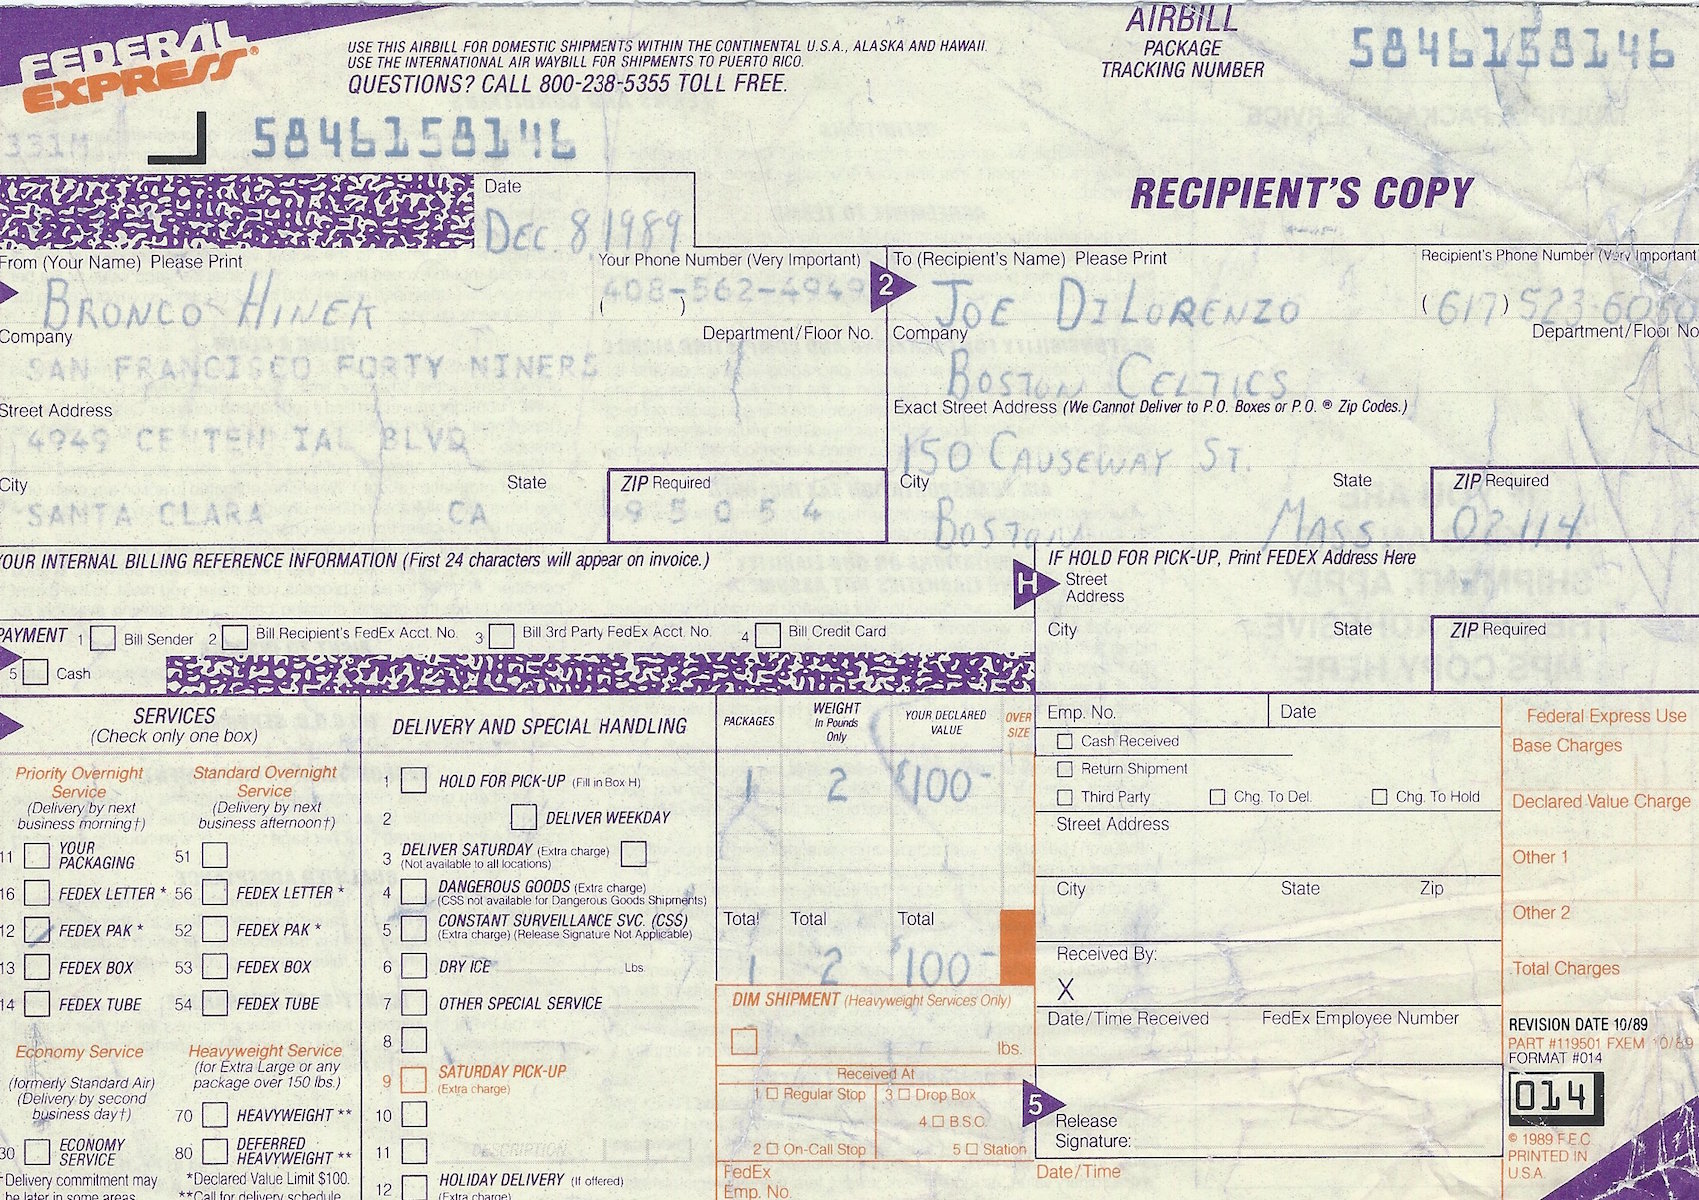 FEDERAL EXPRESS®
USE THIS AIRBILL FOR DOMESTIC SHIPMENTS WITHIN THE CONTINENTAL U.S.A., ALASKA AND HAWAII.
USE THE INTERNATIONAL AIR WAYBILL FOR SHIPMENTS TO PUERTO RICO.
QUESTIONS? CALL 800-238-5355 TOLL FREE.
AIRBILL
PACKAGE
TRACKING NUMBER
5846158146
331M
5846158146
RECIPIENT'S COPY
Date
DEC 8, 1989
From (Your Name) Please Print
BRONCO HINEK
Your Phone Number (Very Important)
408-562-4949
( )
Company
Department/Floor No.
SAN FRANCISCO FORTY NINERS
Street Address
4949 CENTENNIAL BLVD
City
State
ZIP Required
SANTA CLARA CA 95054
2
To (Recipient's Name) Please Print
JOE DILORENZO
Recipient's Phone Number (Very Important
(617) 523-6050
Company
Department/Floor No
BOSTON CELTICS
Exact Street Address (We Cannot Deliver to P.O. Boxes or P.O.® Zip Codes.)
150 CAUSEWAY ST.
City
State
ZIP Required
BOSTON MASS 02114
YOUR INTERNAL BILLING REFERENCE INFORMATION (First 24 characters will appear on invoice.)
H
IF HOLD FOR PICK-UP, Print FEDEX Address Here
Street
Address
City
State
ZIP Required
PAYMENT
1 Bill Sender
2 Bill Recipient's FedEx Acct. No.
3 Bill 3rd Party FedEx Acct. No.
4 Bill Credit Card
5 Cash
SERVICES
(Check only one box)
Priority Overnight
Service
(Delivery by next
business morning†)
Standard Overnight
Service
(Delivery by next
business afternoon†)
11 YOUR PACKAGING
51
16 FEDEX LETTER *
56 FEDEX LETTER *
12 FEDEX PAK *
52 FEDEX PAK *
13 FEDEX BOX
53 FEDEX BOX
14 FEDEX TUBE
54 FEDEX TUBE
Economy Service
(formerly Standard Air)
(Delivery by second
business day†)
Heavyweight Service
(for Extra Large or any
package over 150 lbs.)
70 HEAVYWEIGHT **
30 ECONOMY SERVICE
80 DEFERRED HEAVYWEIGHT **
†Delivery commitment may
be later in some areas.
*Declared Value Limit $100.
**Call for delivery schedule.
DELIVERY AND SPECIAL HANDLING
1 HOLD FOR PICK-UP (Fill in Box H)
2 DELIVER WEEKDAY
3 DELIVER SATURDAY (Extra charge)
(Not available to all locations)
4 DANGEROUS GOODS (Extra charge)
(CSS not available for Dangerous Goods Shipments)
5 CONSTANT SURVEILLANCE SVC. (CSS)
(Extra charge) (Release Signature Not Applicable)
6 DRY ICE Lbs.
7 OTHER SPECIAL SERVICE
8
9 SATURDAY PICK-UP
(Extra charge)
10
11 DESCRIPTION
12 HOLIDAY DELIVERY (If offered)
(Extra charge)
PACKAGES
WEIGHT
In Pounds
Only
YOUR DECLARED
VALUE
OVER
SIZE
1 2 $100-
Total Total Total
1 2 $100-
DIM SHIPMENT (Heavyweight Services Only)
lbs.
Received At
1 Regular Stop
3 Drop Box
4 B.S.C.
2 On-Call Stop
5 Station
FedEx
Emp. No.
Date/Time
Emp. No.
Date
Cash Received
Return Shipment
Third Party
Chg. To Del.
Chg. To Hold
Street Address
City
State
Zip
Received By:
X
Date/Time Received
FedEx Employee Number
5
Release
Signature:
Federal Express Use
Base Charges
Declared Value Charge
Other 1
Other 2
Total Charges
REVISION DATE 10/89
PART #119501 FXEM 10/89
FORMAT #014
014
© 1989 F.E.C.
PRINTED IN
U.S.A.